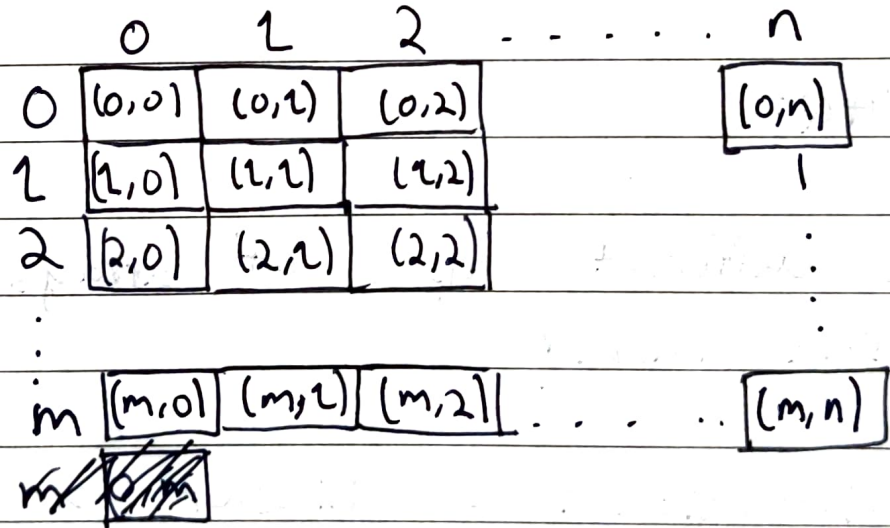 0 1 2 . . . . . . n
0 (0,0) (0,1) (0,2) (0,n)
1 (1,0) (1,1) (1,2)
2 (2,0) (2,1) (2,2)
m (m,0) (m,1) (m,2) . . . . . . (m,n)